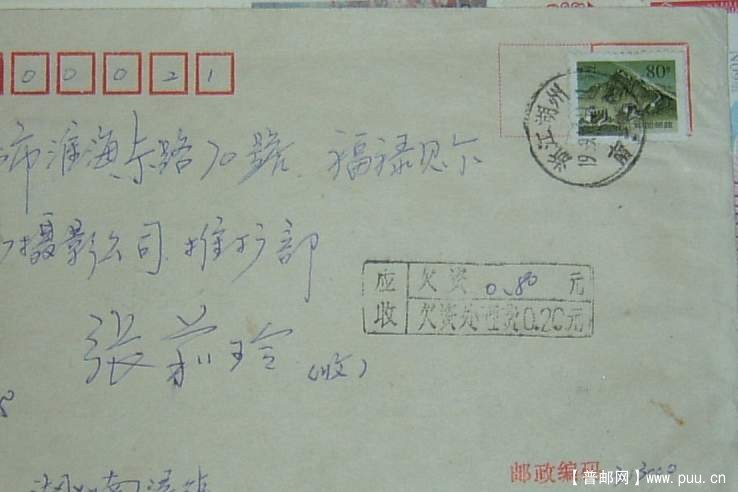 000021
80分
中国邮政
浙江湖州
南
市淮海东路70號 福禄贝尔
摄影公司 推扩部
应收 欠资 0.80 元
欠资处理费 0.20元
张莉玲(收)
邮政编码
【普邮网】www.puu.cn